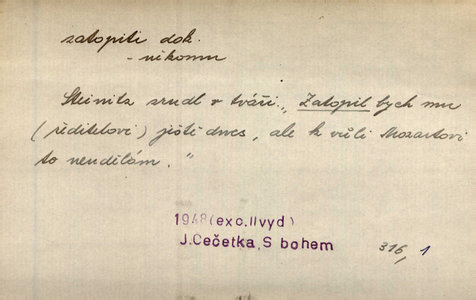 zatopiti dok.
- někomu
Steinita zrudl v tváři. „Zatopil bych mu
(ředitelovi) ještě dnes, ale k vůli Mozartovi
to neudělám."
1948(exc.IIvyd)
J.Cečetka,S bohem
316, 1